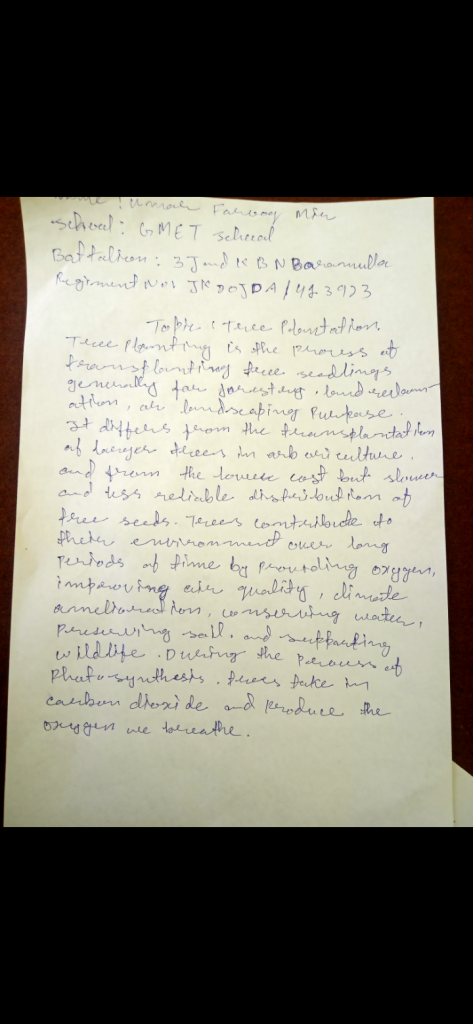 Name : Umar Farooq Mir
School : GMET School
Battalion : 3 J and K BN Baramulla
Regiment No :
Topic : Tree Plantation.
Tree Planting is the process of
transplanting tree seedlings
generally for forestry, land reclam-
ation, or landscaping Purpose.
It differs from the transplantation
of larger trees in arboriculture.
and from the lower cost but slower
and less reliable distribution of
tree seeds. Trees contribute to
their environment over long
Periods of time by providing oxygen,
improving air quality, climate
amelioration, conserving water,
Preserving soil. and supporting
wildlife. During the Process of
Photosynthesis. trees take in
carbon dioxide and Produce the
oxygen we breathe.